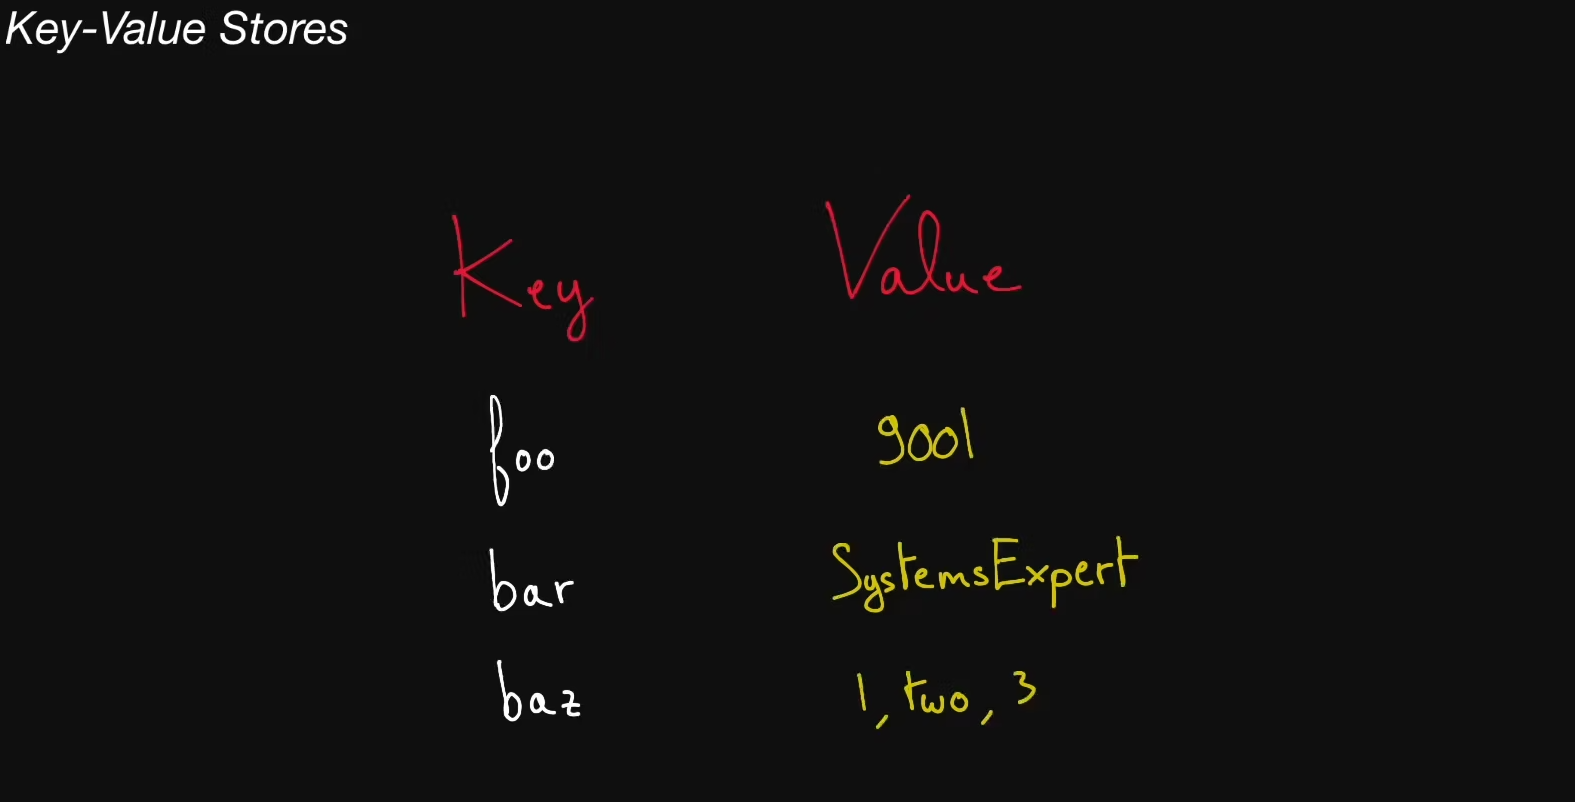 Key-Value Stores
Key Value
foo 9001
bar SystemsExpert
baz 1, two, 3